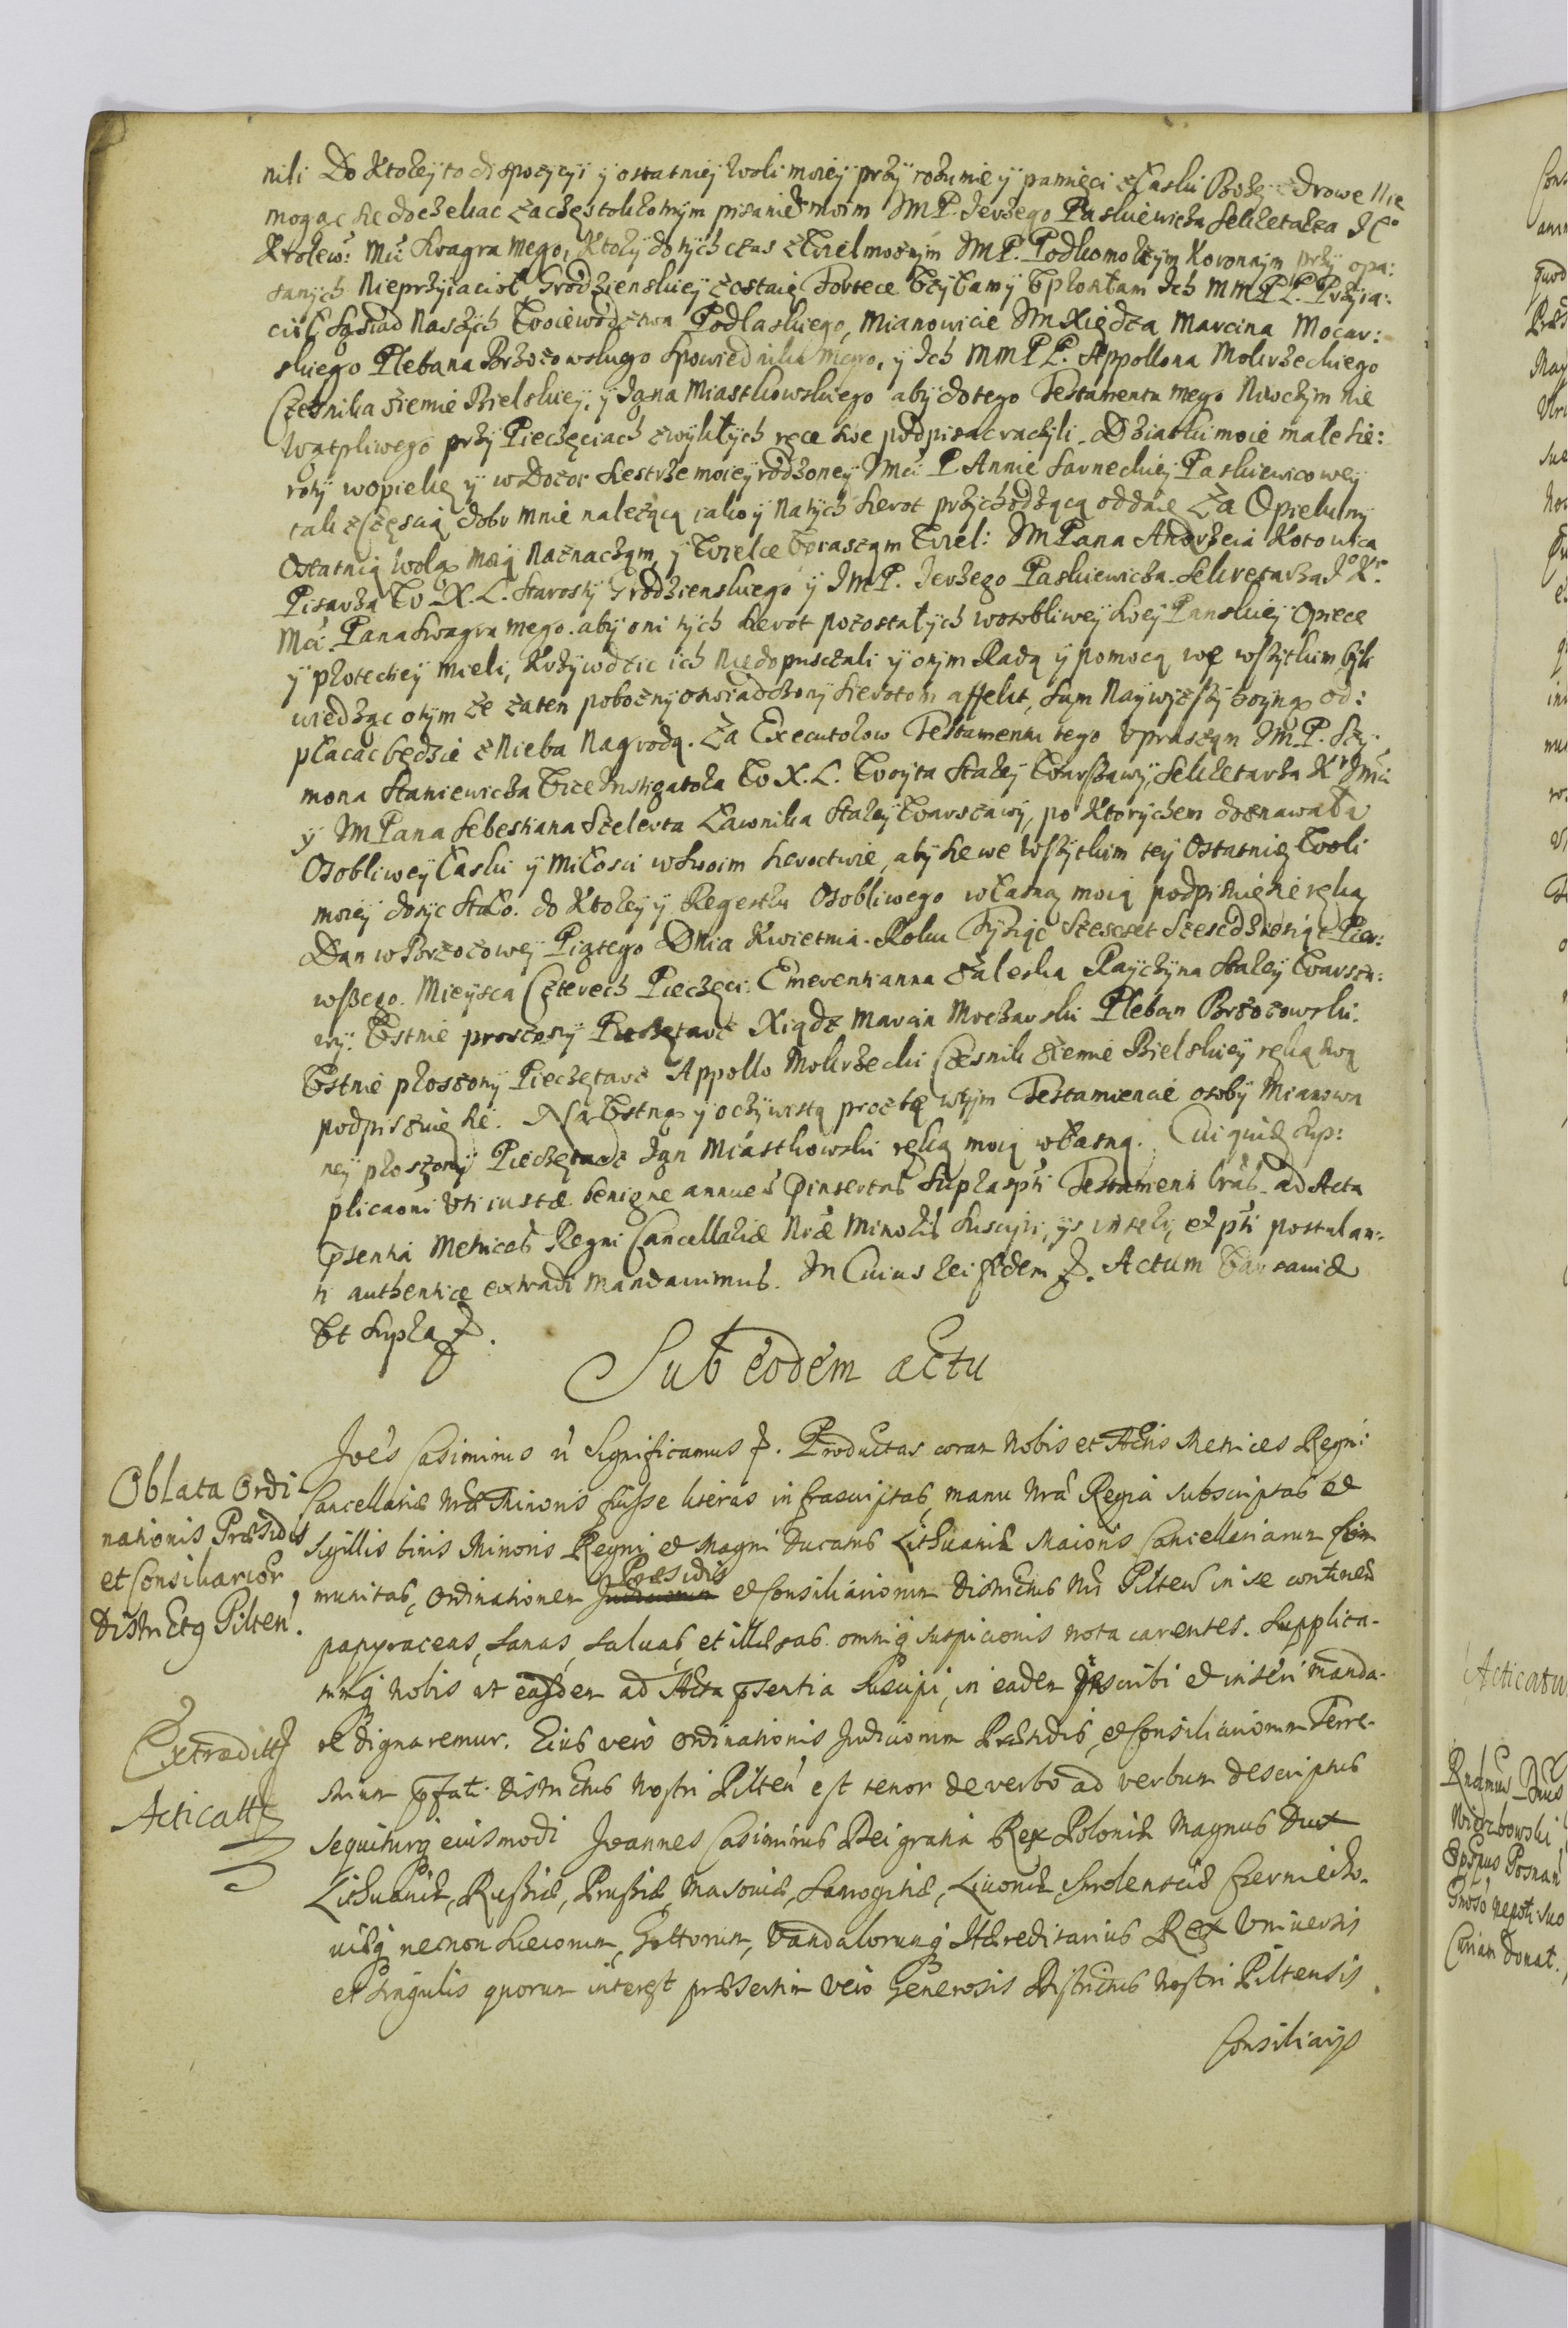 nili Do Ktorey to dispozycyi y ostatniey woli moiey przy rozumie y pamięci z Łaski Bożey zdrowe Nie
mogąc sie doczekac zaczęstokrotnym pisaniem moim JMP. Jerzego Paskiewicza Sekretarza J Co
Krolew: Mci Szwagra mego, Ktory do tych czas z Wielmoznym JMP. Podkomorzym Koronnym przy opa:
sanych Nieprzyiacioł Grodzienskiey zostaie Fortece Uzyłam y Uprosiłam Ich MM PP. Przyia:
cioł Sąsiad Naszych Woiewodztwa Podlaskiego, Mianowicie Jm Xiędza Marcina Mocar:
skiego Plebana Brzozowskiego Spowiednika mego, y Ich MM PP. Appollona Mokrzeckiego
Czesnika Ziemie Bielskiey, y Jana Miastkowskiego aby do tego Testamentu mego Niwczym nie
wątpliwego przy Pieczęciach zwykłych ręce swe podpisac raczyli. Dziatki moie małe Sie:
roty w opiekę y w Dozor Siestrze moiey rodzoney Jmci P. Annie Sarneckiey Paskiewicowey
tak z częscią dobr mnie nalezącą iako y na tych sierot przychodzącą oddaię Za Opiekuny
Ostatnią wolą moią Naznaczam, y Wielce Upraszam Wiel: JM Pana Andrzeia Kotowica
Pisarza W. X. L. Starosty Grodzienskiego y JMP. Jerzego Paskiewicza. Sekretarza Jo Kr.
Mci. Pana Szwagra mego. aby oni tych Sierot pozostałych w osobliwey swey Panskiey Opiece
y protekcyey mieli, Krzywdzic ich Niedopusczali y onym Radą y pomocą we wszytkim byli
wiedząc o tym ze za ten pobozny oswiadczony Sierotom affekt, Sam Naywyzszy hoyną od:
płacac będzie z Nieba Nagrodą. Za Executorow Testamentu tego Upraszam JM. P. Szy:
mona Staniewicza Vice Instigatora W. X. L. Woyta Starey Warszawy, Sekretarza Kr Jmci
y JM Pana Sebestiana Szelerta Ławnika Starey Warszawy, po Ktorychem doznawała
Osobliwey Łaski y Miłosci w Swoim Sieroctwie, aby sie we Wszytkim tey Ostatniey Woli
moiey dosyc stało. do Ktorey y Regestru Osobliwego własną moią podpisuię sie ręką
Dan w Brzozowey Piątego Dnia Kwietnia. Roku Tysiąc Szescset Szescdziesiąt Pier:
wszego. Mieysca Czterech Pieczęci. Emerentianna Zaleska Rayczyna Starey Warsza:
wy. Ustnie proszony Pieczętarz Xiądz Marcin Moczarski Pleban Brzozowski.
Ustnie proszony Pieczętarz Appollo Mokrzecki Czesnik Ziemie Bielskiey ręką swą
podpisuię sie. Na Ustną y oczywistą prozbę w tym Testamencie osoby Mianowa
ney proszony Pieczętarz Jan Miastkowski ręką moią własną. Cui quidem Sup:
plicaoni Uti iustæ benigne annuen pinsertas Suprascripti Testamenti lras ad Acta
psentia Metrices Regni Cancellariæ Nræ Minoris Suscipi, ijs inseri, et pti postulan:
ti authentice extradi mandavimus. In Cuius rei fidem &. Actum Varsaviæ
Ut Supra &.
Sub eodem actu
Oblata Ordi
nationis Præsidis
et Consiliarior
Districtq Pilten.
Extraditt
Acticatt
Joes Casimirus &c Significamus &. Productas coram Nobis et Actis Metrices Regni
Cancellariæ Nræ Minoris fuisse literas infrascriptas, manu Nra Regia subscriptas et
sigillis binis Minoris Regni et Magni Ducatus Lithuaniæ Maioris Cancellariarum com
munitas, Ordinationem Judiciorum Præsidis et Consiliariorum Districtus Nri Pilten in se continen
papyraceas, sanas, saluas, et illæsas omniq suspicionis nota carentes. Supplica-
tumq Nobis ut easdem ad Acta psentia Suscipi, in eadem inscribi et inseri manda-
re dignaremur. Eius vero Ordinationis Judiciorum Præsidis, et Consiliariorum Terre-
strium pfati Districtus Nostri Pilten est tenor de verbo ad verbum descriptus
sequiturq eiusmodi Joannes Casimirus Dei gratia Rex Poloniæ Magnus Dux
Lithuaniæ, Russiæ, Prussiæ, Masoviæ, Samogitiæ, Livoniæ Smolensciæ Czerniecho-
viæq necnon Suecorum, Gottorum, Vandalorumq Hæreditarius Rex Universis
et Singulis quorum interest præsertim vero Generosis Districtus Nostri Piltensis
Consiliarijs
Acticatu
Rndmus Dnus
Wierzbowski
Eppus Posnan
Gnoso Nepoti suo
Curiam Donat.